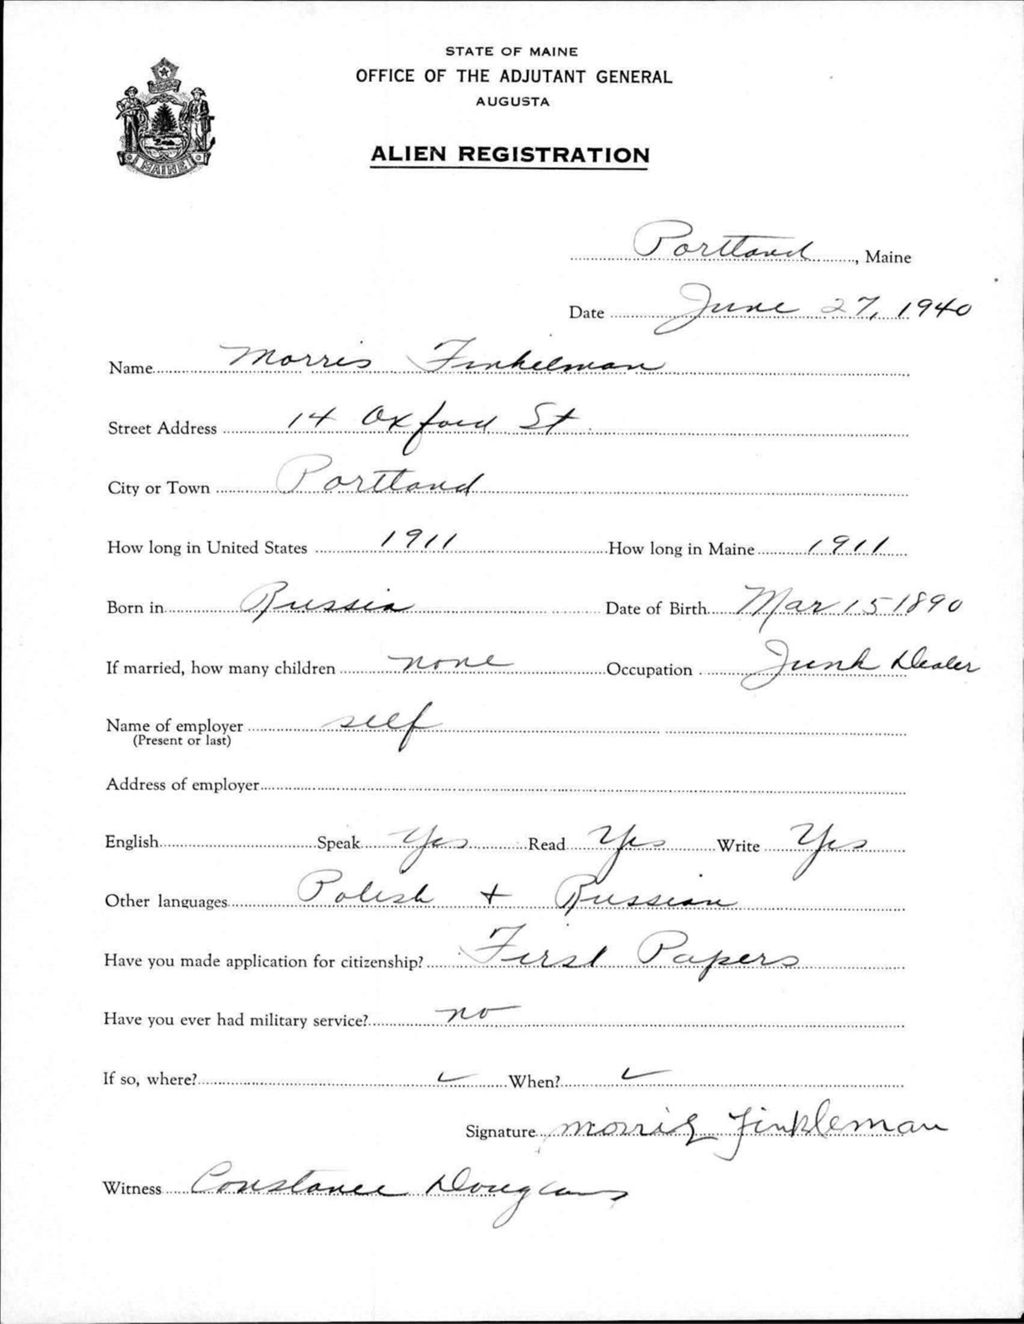 STATE OF MAINE
OFFICE OF THE ADJUTANT GENERAL
AUGUSTA
ALIEN REGISTRATION
MAINE
Portland, Maine
Date June 27, 1940
Name Morris Finkelman
Street Address 14 Oxford St.
City or Town Portland
How long in United States 1911 How long in Maine 1911
Born in Russia Date of Birth Mar 15 1890
If married, how many children none Occupation Junk Dealer
Name of employer self
(Present or last)
Address of employer
English Speak Yes Read Yes Write Yes
Other languages Polish + Russian
Have you made application for citizenship? First Papers
Have you ever had military service? no
If so, where? ✓ When? ✓
Signature Morris Finkleman
Witness Constance Douglass